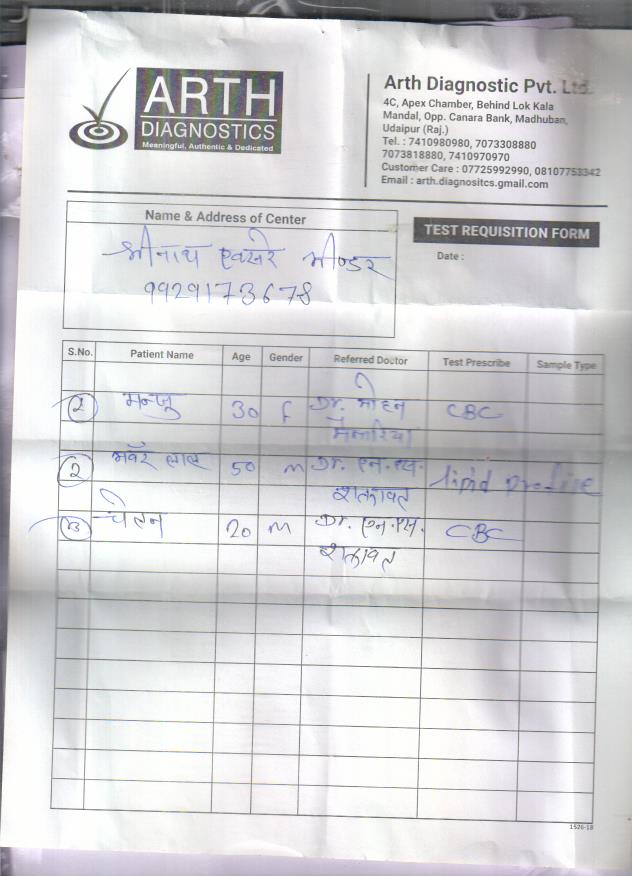 ARTH
DIAGNOSTICS
Meaningful, Authentic & Dedicated
Arth Diagnostic Pvt. Ltd.
4C, Apex Chamber, Behind Lok Kala
Mandal, Opp. Canara Bank, Madhuban,
Udaipur (Raj.)
Tel. : 7410980980, 7073308880
7073818880, 7410970970
Customer Care : 07725992990, 08107753342
Email : arth.diagnositcs.gmail.com
Name & Address of Center
श्रीनाथ एक्सरे भीण्डर
9929173678
TEST REQUISITION FORM
Date :
S.No. Patient Name Age Gender Referred Doctor Test Prescribe Sample Type
मन्जू 30 f Dr. मोहन CBC
2 भवँर लाल 50 m Dr. एन.एस. lipid profile
शक्तावत
3 चेतन 20 m Dr. एन.एस. CBC
शक्तावत
1526-18